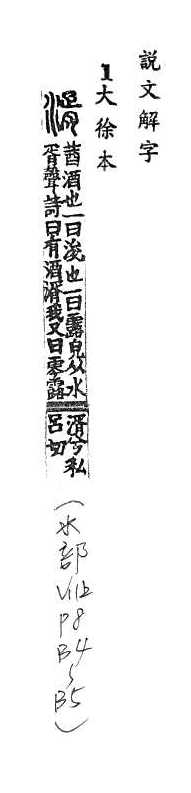 説文解字
1大徐本
湑
莤酒也一曰浚也一曰露皃从水
胥聲詩曰有酒湑我又曰零露
湑兮私
呂切
(水部 P8 B4~B5)